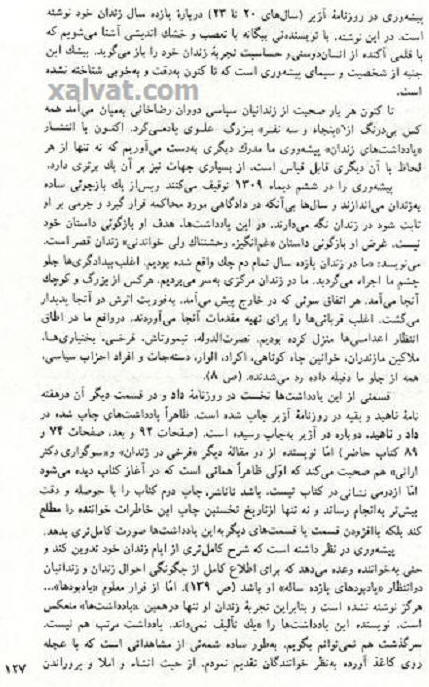 پیشه‌وری در روزنامهٔ آژیر (سال‌های ۲۰ تا ۲۳) دربارهٔ یازده سال زندان خود نوشته
است. در این نوشته، با نویسنده‌ئی بیگانه با تعصب و خشک اندیشی آشنا می‌شویم که
با قلمی آکنده از انسان‌دوستی و حساسیت تجربهٔ زندان خود را باز می‌گوید. بیشک این
جنبه از شخصیت و سیمای پیشه‌وری است که تا کنون به‌دقت و به‌خوبی شناخته نشده
است.
xalvat.com
تا کنون هر بار صحبت از زندانیان سیاسی دوران رضاخانی به‌میان می‌آمد همه
کس بی‌درنگ از «پنجاه و سه نفر» بزرگ علوی یادمی‌کرد. اکنون با انتشار
«یادداشت‌های زندان» پیشه‌وری ما مدرک دیگری به‌دست می‌آوریم که نه تنها از هر
لحاظ با آن دیگری قابل قیاس است، از بسیاری جهات نیز بر آن یک برتری دارد.
پیشه‌وری را در ششم دیماه ۱۳۰۹ توقیف می‌کنند و پس از یک بازجوئی ساده
به‌زندان می‌اندازند و سال‌ها بی‌آنکه در دادگاهی مورد محاکمه قرار گیرد و جرمی بر او
ثابت شود در زندان نگه می‌دارند. در این یادداشت‌ها، هدف او بازگوئی داستان خود
نیست، غرض او بازگوئی داستان «غم‌انگیز، وحشتناک ولی خواندنی» زندان قصر است.
می‌نویسد: «ما در زندان یازده سال تمام دم چک واقع شده بودیم. اغلب بیدادگری‌ها جلو
چشم ما اجراء می‌گردید. ما در زندان مرکزی به‌سر می‌بردیم. هرکس از بزرگ و کوچک
آنجا می‌آمد. هر اتفاق سوئی که در خارج پیش می‌آمد، به‌فوریت اثرش در آنجا پدیدار
می‌گشت. اغلب قربانی‌ها را برای تهیه مقدمات آنجا می‌آوردند. درواقع ما در اطاق
انتظار اعدامی‌ها منزل کرده بودیم. نصرت‌الدوله، تیمورتاش، فرخی، بختیاری‌ها،
ملاکین مازندران، خوانین چاه کوتاهی، اکراد، الوار، دستجات و افراد احزاب سیاسی،
همه از جلو ما دفیله داده رد می‌شدند». (ص ۸).
قسمتی از این یادداشت‌ها نخست در روزنامهٔ داد و در قسمت دیگر آن درهفته
نامهٔ ناهید و بقیه در روزنامهٔ آژیر چاپ شده است. ظاهراً یادداشت‌های چاپ شده در
داد و ناهید، دوباره در آژیر به‌چاپ رسیده است. (صفحات ۹۲ و بعد، صفحات ۷۴ و
۸۹ کتاب حاضر) اما نویسنده از دو مقالهٔ دیگر «فرخی در زندان» و «سوگواری دکتر
ارانی» هم صحبت می‌کند که اولی ظاهراً همانی است که در آغاز کتاب دیده می‌شود
اما ازدومی نشانی در کتاب نیست. باشد تاناشر، چاپ دوم کتاب را با حوصله و دقت
بیش‌تر به‌انجام رساند و نه تنها ازتاریخ نخستین چاپ این خاطرات خواننده را مطلع
کند بلکه باافزودن قسمت یا قسمت‌های دیگر به‌این یادداشت‌ها صورت کامل‌تری بدهد.
پیشه‌وری در نظر داشته است که شرح کامل‌تری از ایام زندان خود تدوین کند و
حتی به‌خواننده وعده می‌دهد که برای اطلاع کامل از چگونگی احوال زندان و زندانیان
درانتظار «یادبودهای یازده ساله» او باشد (ص ۱۳۹). اما از قرار معلوم «یادبودها»...
هرگز نوشته نشده است و بنابراین تجربهٔ زندان او تنها درهمین «یادداشت‌ها» منعکس
است. نویسنده این یادداشت‌ها را «یک تألیف نمی‌داند. یادداشت مرتب هم نیست.
سرگذشت هم نمی‌توانم بگویم. به‌طور ساده شمه‌ئی از مشاهداتی است که با عجله
روی کاغذ آورده به‌نظر خوانندگان تقدیم نمودم. از حیث انشاء و املا و پروراندن
۱۲۷